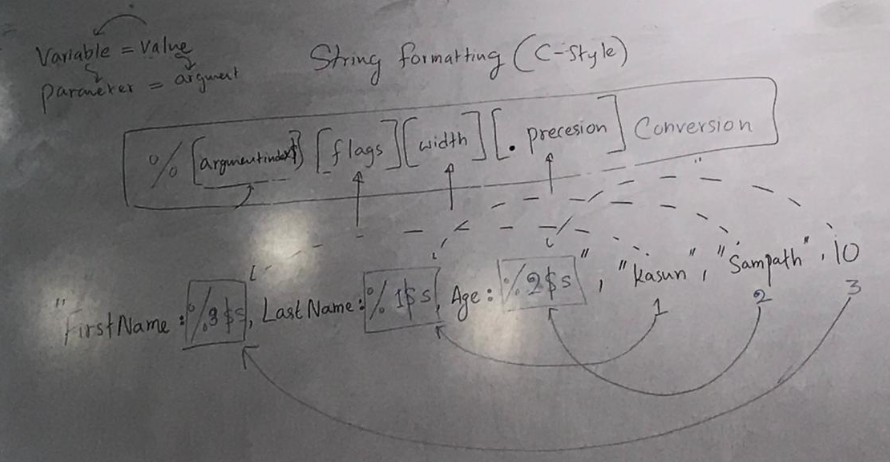 Variable = Value
Parameter = argument
String formatting (C-Style)
% [argumentindex$] [flags] [width] [. precesion] Conversion
"FirstName : %3$s, LastName : %1$s, Age : %2$s", "Kasun", "Sampath", 10
1 2 3